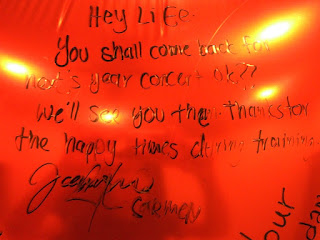 Hey Li Ee
You shall come back for
next's year concert ok??
We'll see you then. Thanks for
the happy times during training.
CARMEN
our